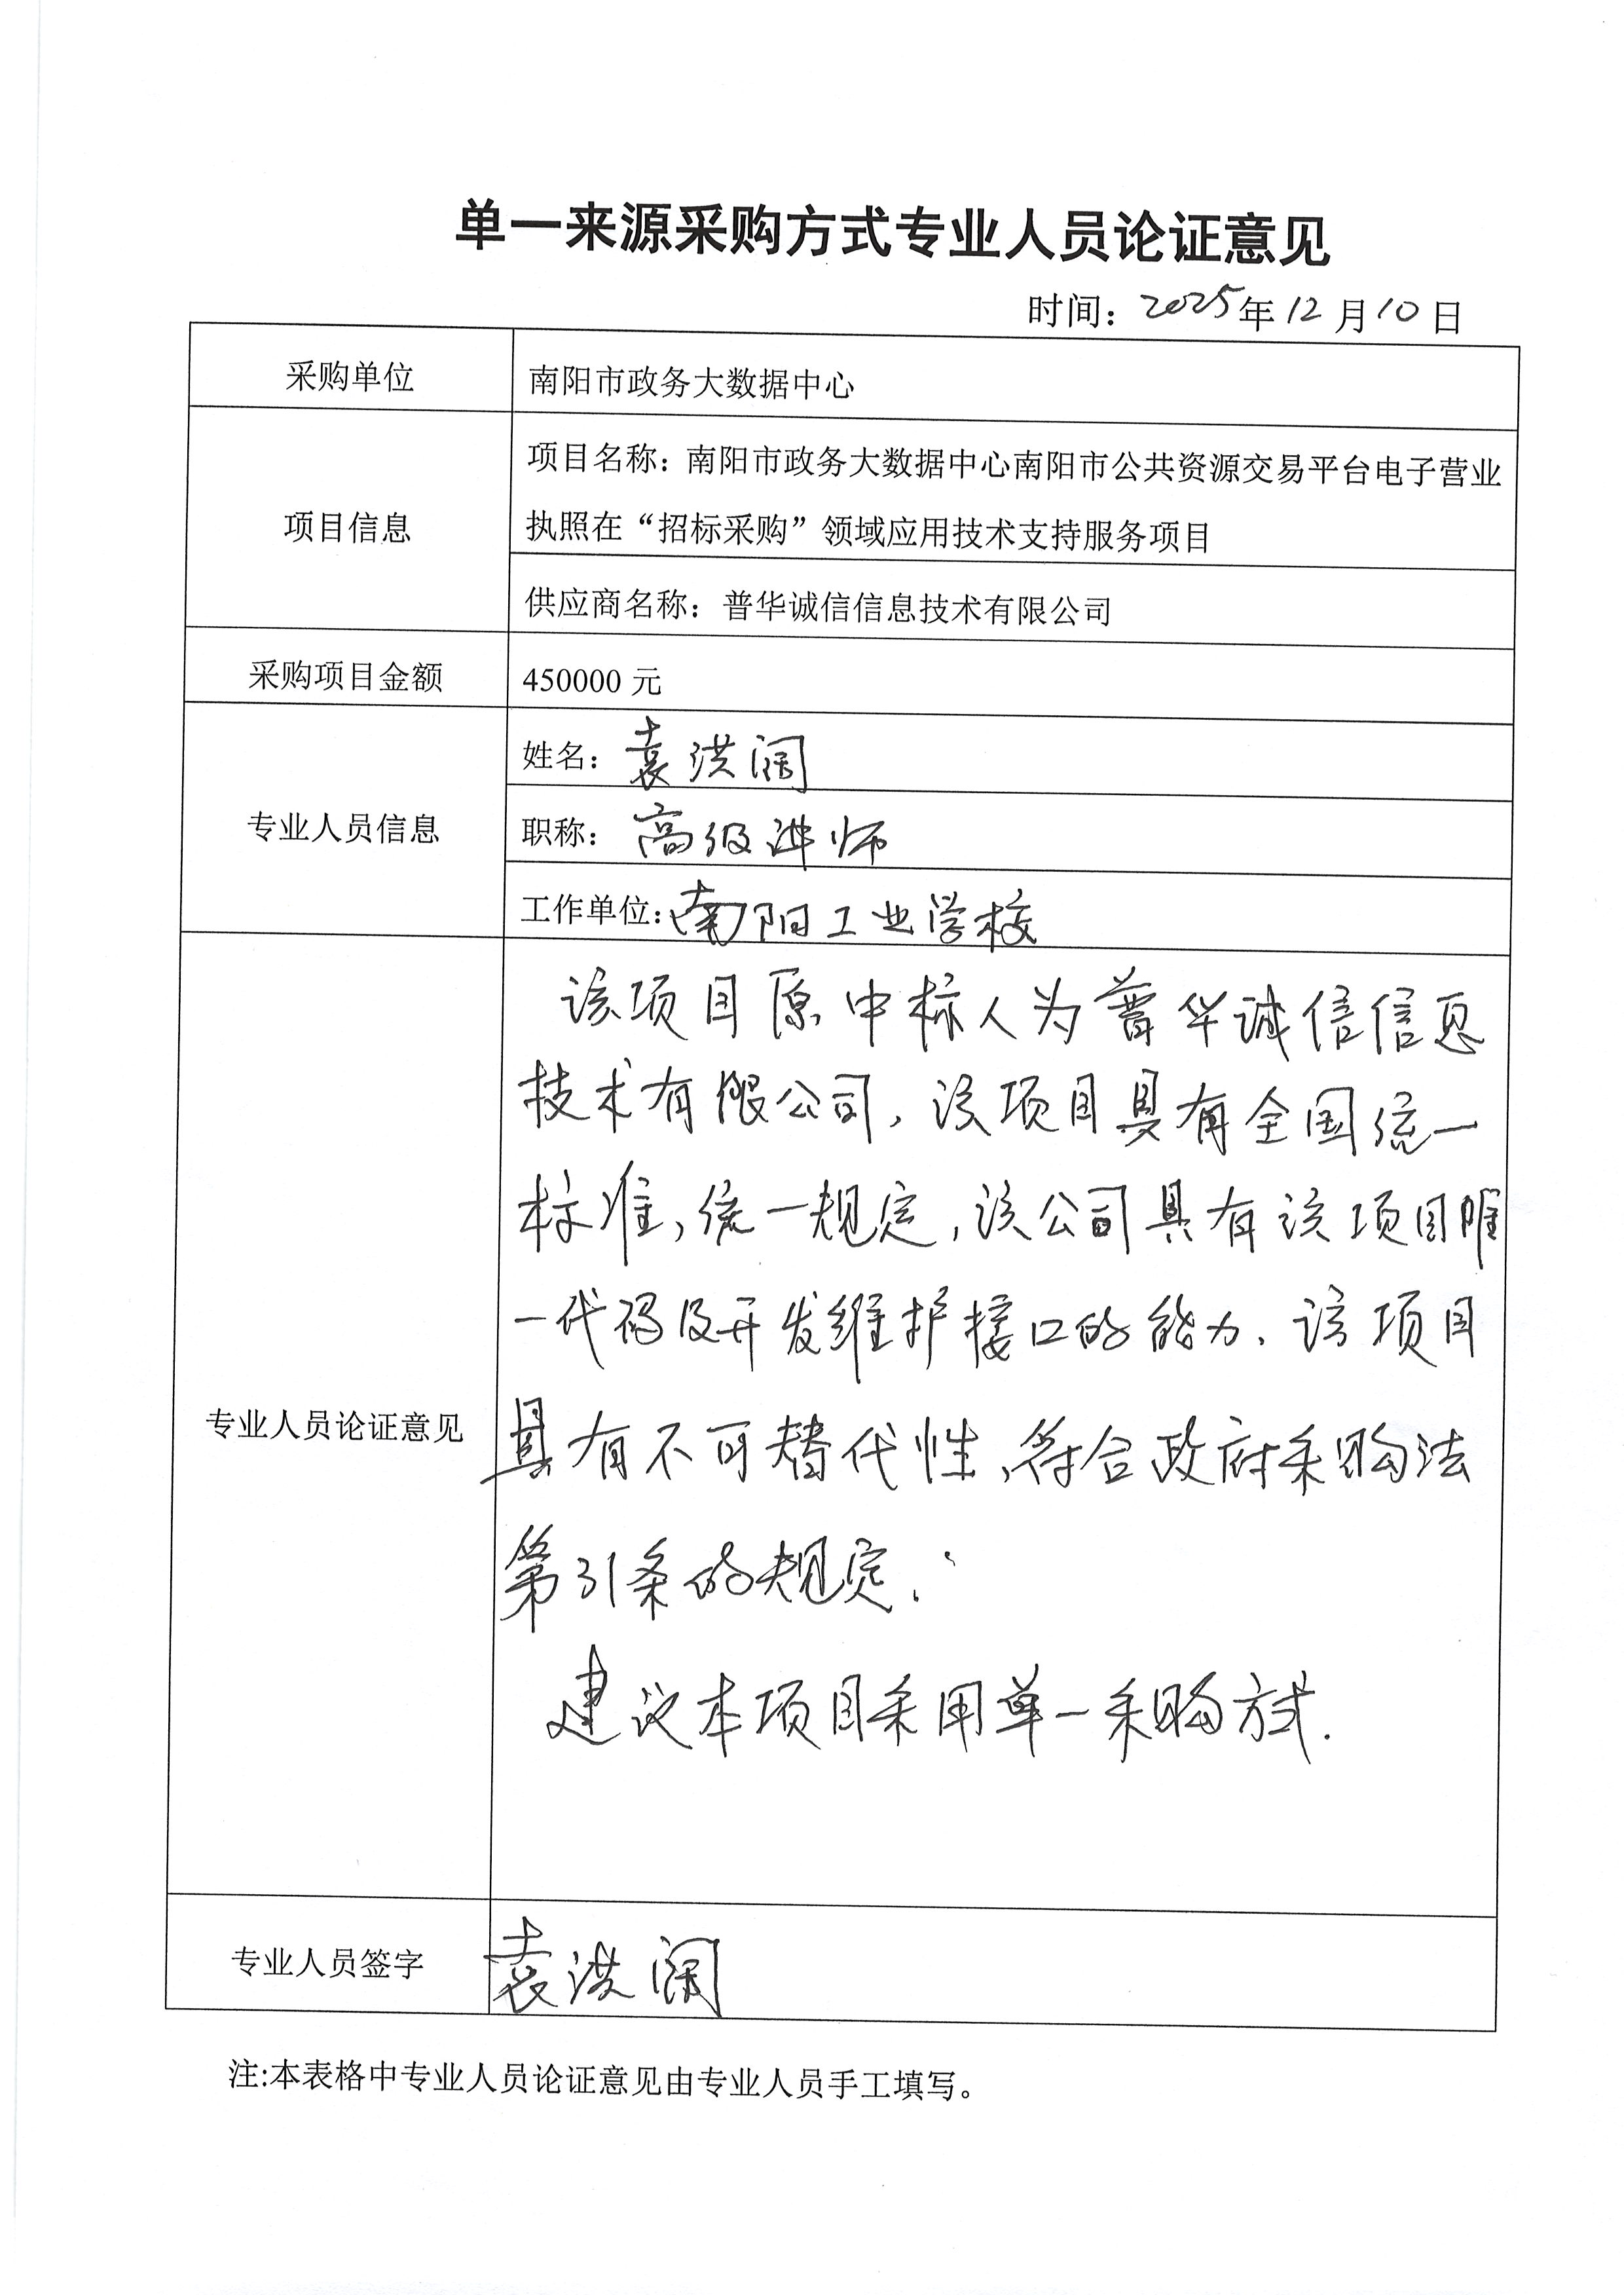 单一来源采购方式专业人员论证意见
时间：2025年12月10日
采购单位
南阳市政务大数据中心
项目信息
项目名称：南阳市政务大数据中心南阳市公共资源交易平台电子营业
执照在“招标采购”领域应用技术支持服务项目
供应商名称：普华诚信信息技术有限公司
采购项目金额
450000 元
专业人员信息
姓名：袁洪阔
职称：高级讲师
工作单位：南阳工业学校
专业人员论证意见
该项目原中标人为普华诚信信息
技术有限公司，该项目具有全国统一
标准，统一规定，该公司具有该项目唯
一代码及开发维护接口的能力．该项目
具有不可替代性，符合政府采购法
第31条的规定．
建议本项目采用单一采购方式．
专业人员签字
袁洪阔
注:本表格中专业人员论证意见由专业人员手工填写。